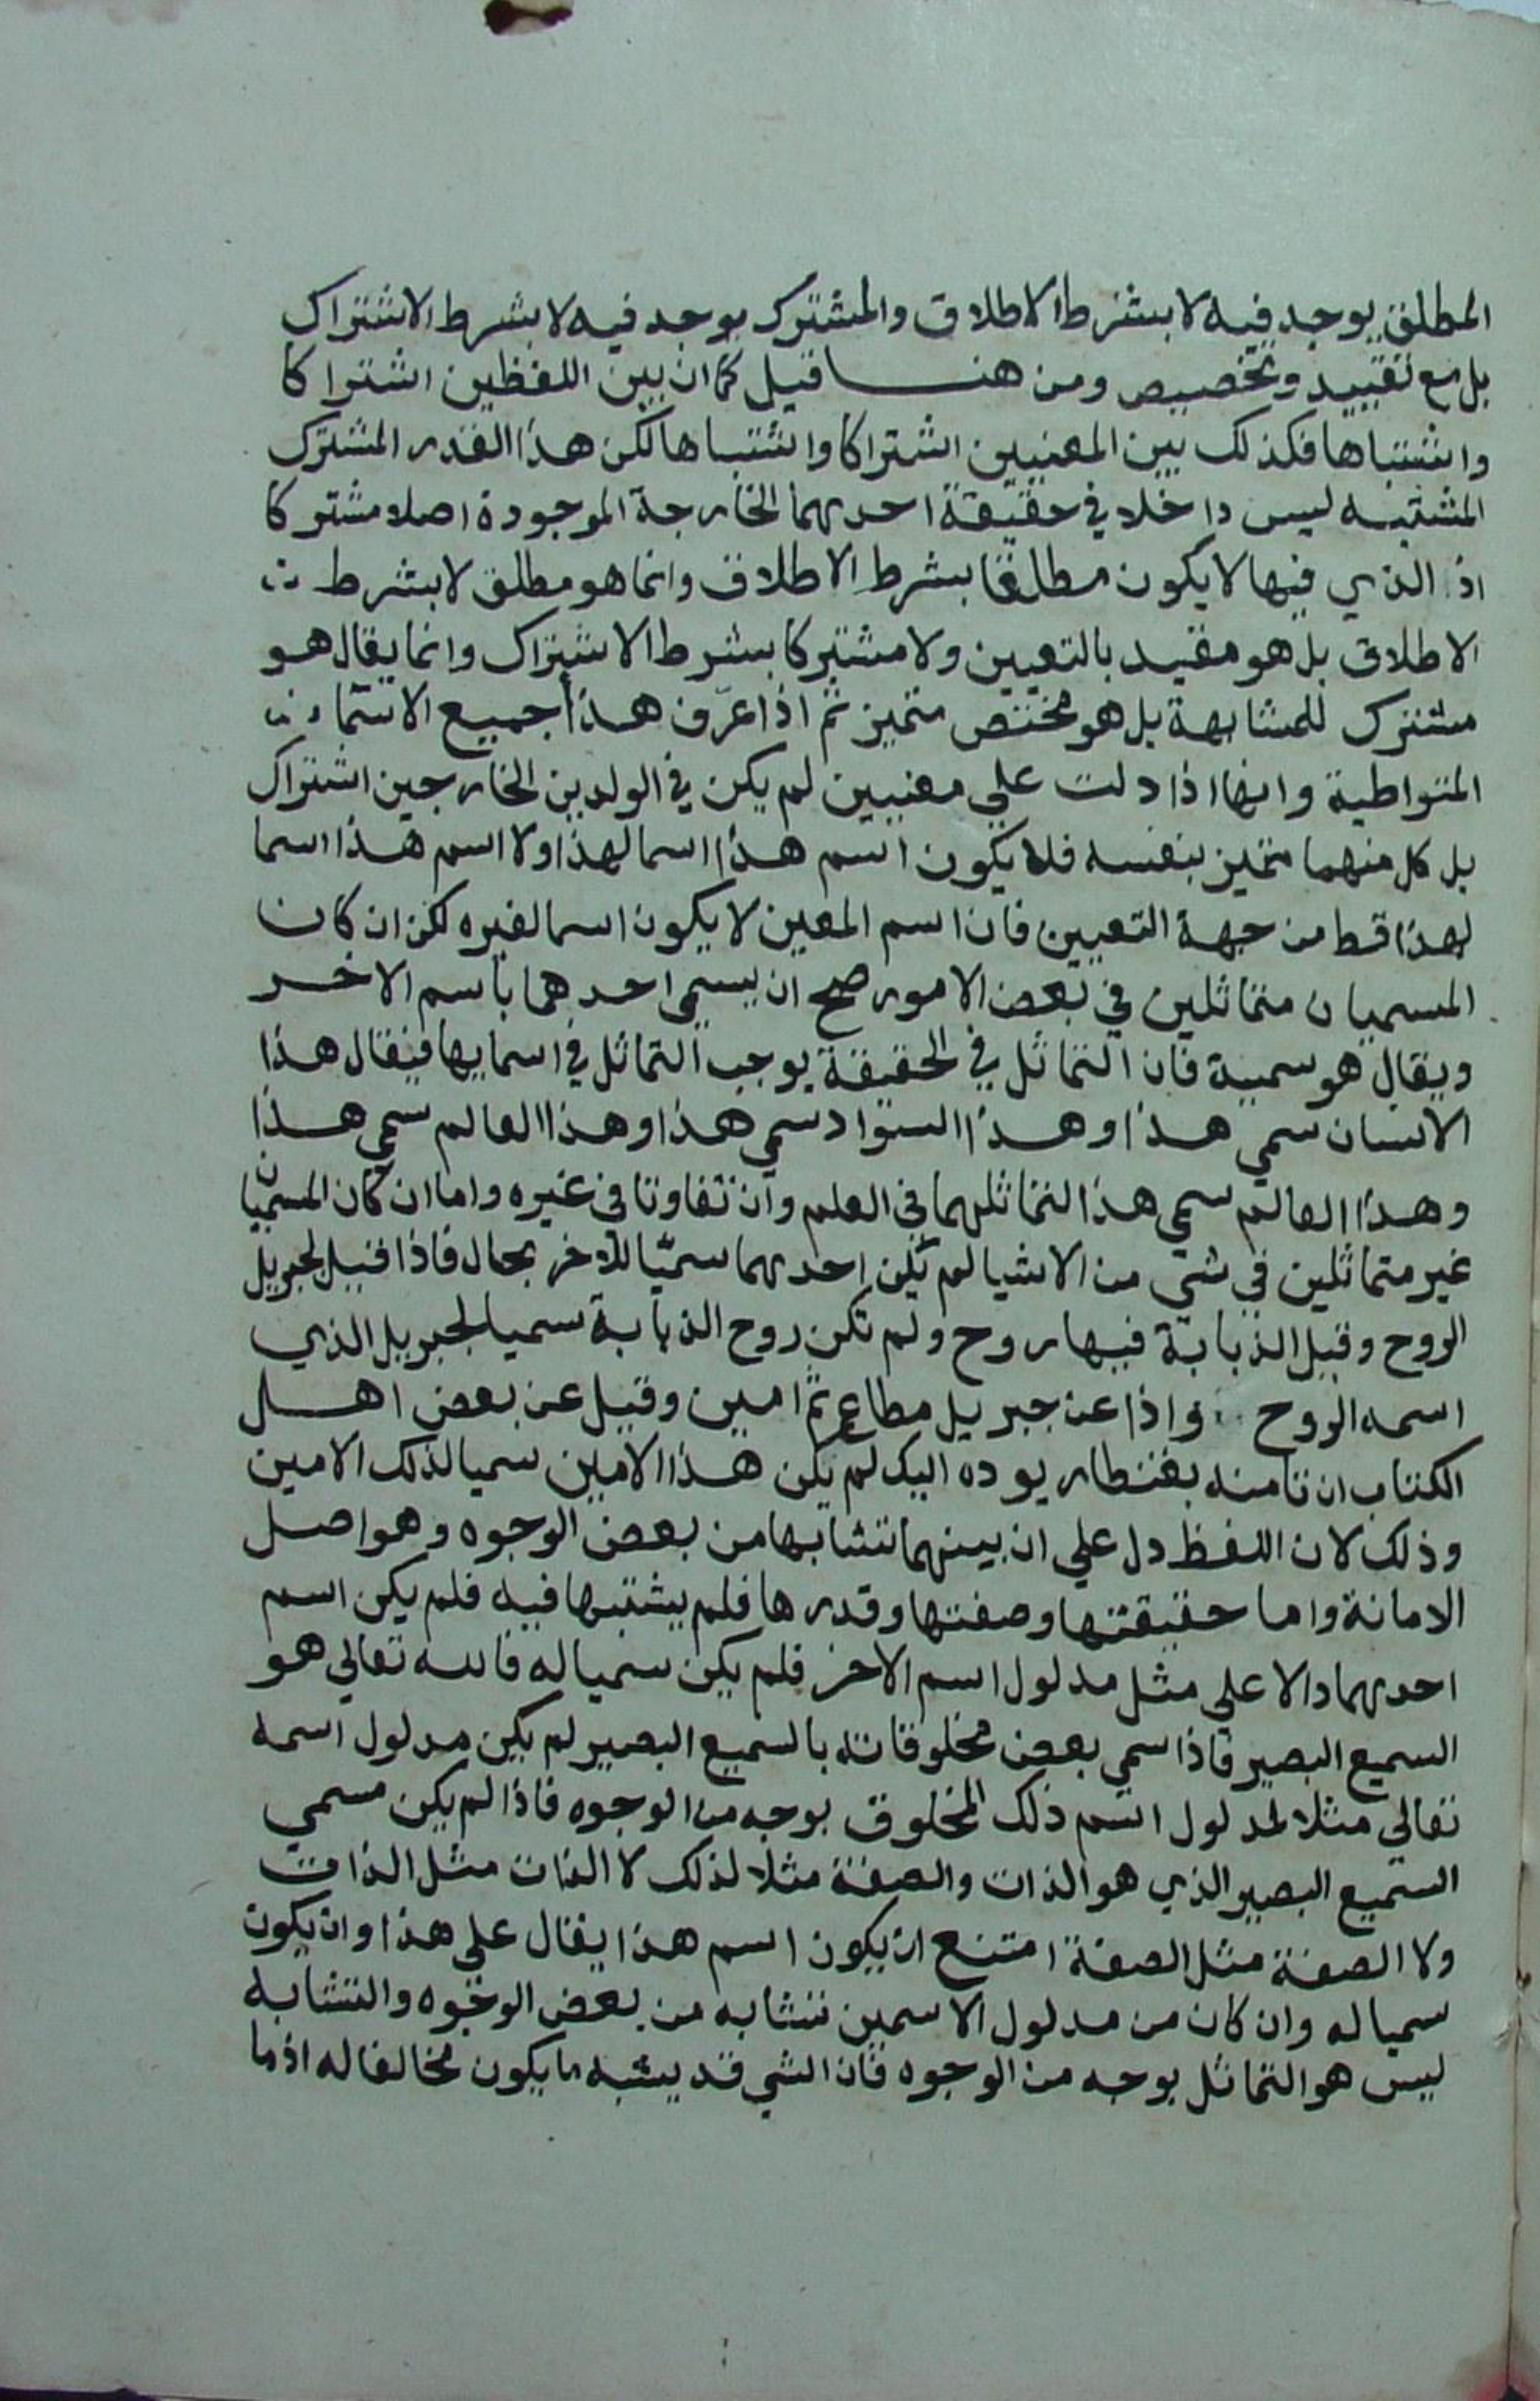 المطلق يوجد فيه لا بشرط الاطلاق والمشترك يوجد فيه لا بشرط الاشتراك
بل مع تقييد وتخصيص ومن هنا قيل كما ان بين اللفظين اشتراكا
واشتباها فكذلك بين المعنيين اشتراكا واشتباها لكن هذا القدر المشترك
المشتبه ليس داخلا في حقيقة احديهما الخارجة الموجودة اصلا مشتركا
اذ الذي فيها لا يكون مطلقا بشرط الاطلاق وانما هو مطلق لا بشرط
الاطلاق بل هو مقيد بالتعيين ولا مشتركا بشرط الاشتراك وانما يقال هو
مشترك للمشابهة بل هو مختص متميز ثم اذا عرف هذا جميع الاسماء
المتواطية وانها اذا دلت علي معنيين لم يكن في الولدين الخارجين اشتراك
بل كل منهما متميز بنفسه فلا يكون اسم هذا اسما لهذا ولا اسم هذا اسما
لهذا قط من جهة التعيين فان اسم المعين لا يكون اسما لغيره لكن ان كان
المسميان متماثلين في بعض الامور صح ان يسمي احدهما باسم الاخر
ويقال هو سمية فان التماثل في الحقيقة يوجب التماثل في اسمايها فيقال هذا
الانسان سمي هذا وهذا السواد سمي هذا وهذا العالم سمي هذا
وهذا العالم سمي هذا لتماثلهما في العلم وان تفاوتا في غيره واما ان كان المسميان
غير متماثلين في شي من الاشيا لم يكن احديهما سميّا للآخر بحال فاذا قيل لجبريل
الروح وقيل الذبابة فيها روح ولم تكن روح الذبابة سميا لجبريل الذي
اسمه الروح واذا عن جبريل مطاع ثم امين وقيل عن بعض اهل
الكتاب ان تامنه بقنطار يوده اليك لم يكن هذا الامين سميا لذلك الامين
وذلك لان اللفظ دل علي ان بينهما تشابها من بعض الوجوه وهو اصل
الامانة واما حقيقتها وصفتها وقدرها فلم يشتبها فيه فلم يكن اسم
احديهما دالا علي مثل مدلول اسم الاخر فلم يكن سميا له فالله تعالي هو
السميع البصير فاذا سمي بعض مخلوقاته بالسميع البصير لم يكن مدلول اسمه
تعالي مثلا لمدلول اسم ذلك المخلوق بوجه من الوجوه فاذا لم يكن مسمي
السميع البصير الذي هو الذات والصفة مثلا لذلك لا الذات مثل الذات
ولا الصفة مثل الصفة امتنع ان يكون اسم هذا يقال علي هذا وان يكون
سميا له وان كان من مدلول الاسمين تشابه من بعض الوجوه والتشابه
ليس هو التماثل بوجه من الوجوه فان الشي قد يشبه ما يكون مخالفا له اذ ما